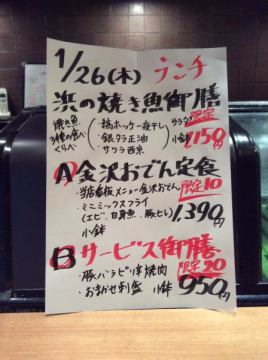 1/26(木) ランチ
浜の焼き魚御膳
焼き魚
3種の食べ
くらべ
・縞ホッケ一夜干し
・銀ダラ正油
・サワラ西京
サラダ
小鉢
限定
1,150円
A 金沢おでん定食
当店看板メニュー金沢おでん
限定10
・ミニミックスフライ
(エビ、白身魚、豚ヒレ)
1,390円
小鉢
B サービス御膳
限定20
・豚バラピリ辛焼肉
・おまかせ刺盛 小鉢
950円